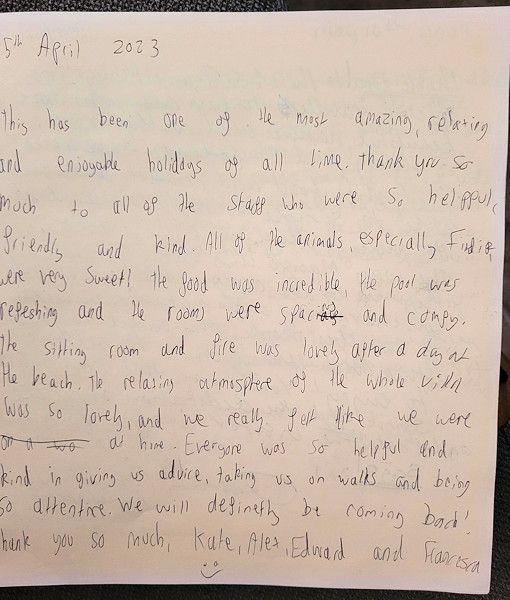 5th April 2023
This has been one of the most amazing, relaxing
and enjoyable holidays of all time. Thank you so
much to all of the staff who were so helpful,
friendly and kind. All of the animals, especially
were very sweet! The food was incredible, the pool was
refeshing and the rooms were and comfy.
The sitting room and fire was lovely after a day at
the beach. The relaxing atmosphere of the whole villa
was so lovely, and we really felt like we were
at home. Everyone was so helpful and
kind in giving us advice, taking us on walks and being
so attentive. We will definetly be coming back!
Thank you so much, Kate, Alex, Edward and Francisca